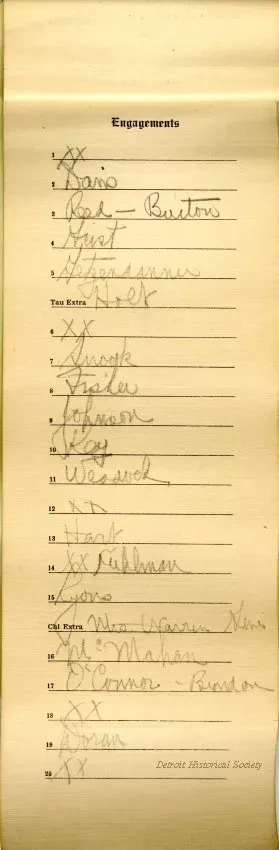 Engagements
1 XX
2 Davis
3 Red - Burton
4 Frist
5
Tau Extra Holt
6 XX
7 Snook
8 Fisher
9 Johnson
10 Kay
11 Weadock
12 XX
13 Hart
14 XX Kuhlman
15 Lyons
Chi Extra Mrs Warren
16 McMahan
17 O'Connor - Brondon
18 XX
19 Doran
20 XX
Detroit Historical Society